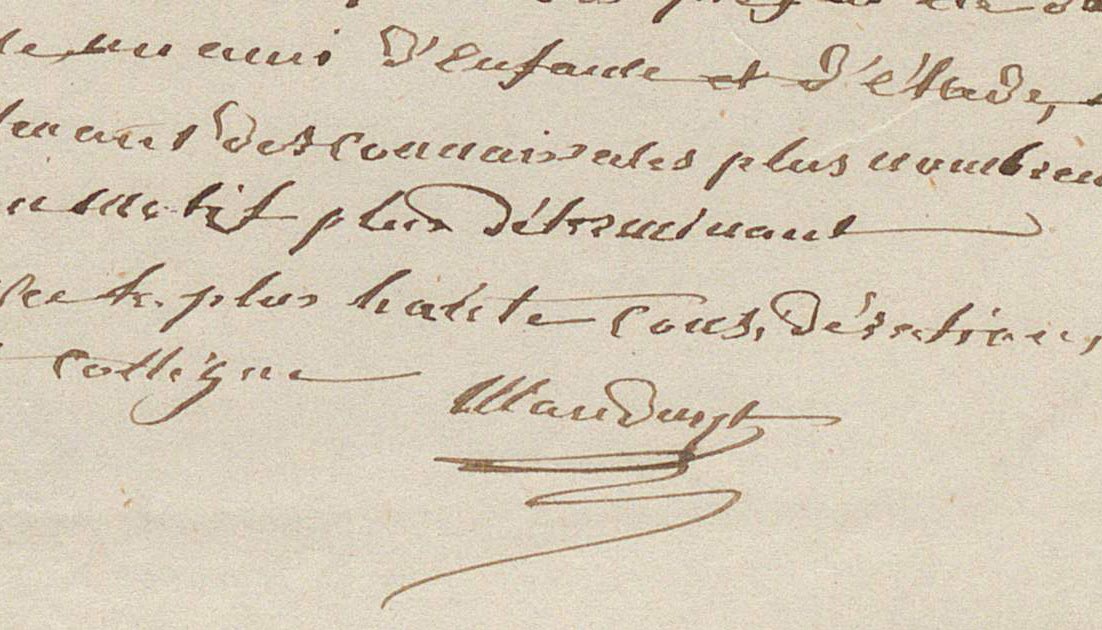 de un ami d'enfance et d'étude,
des connaissances plus nombreu
motif plus déterminant
plus haute considération,
collègue
Mauduyt